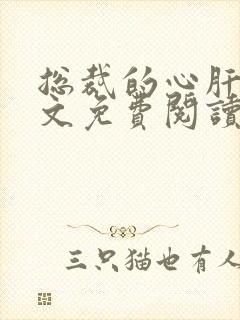 总裁的心肝
文免费閱讀
三只猫也有人